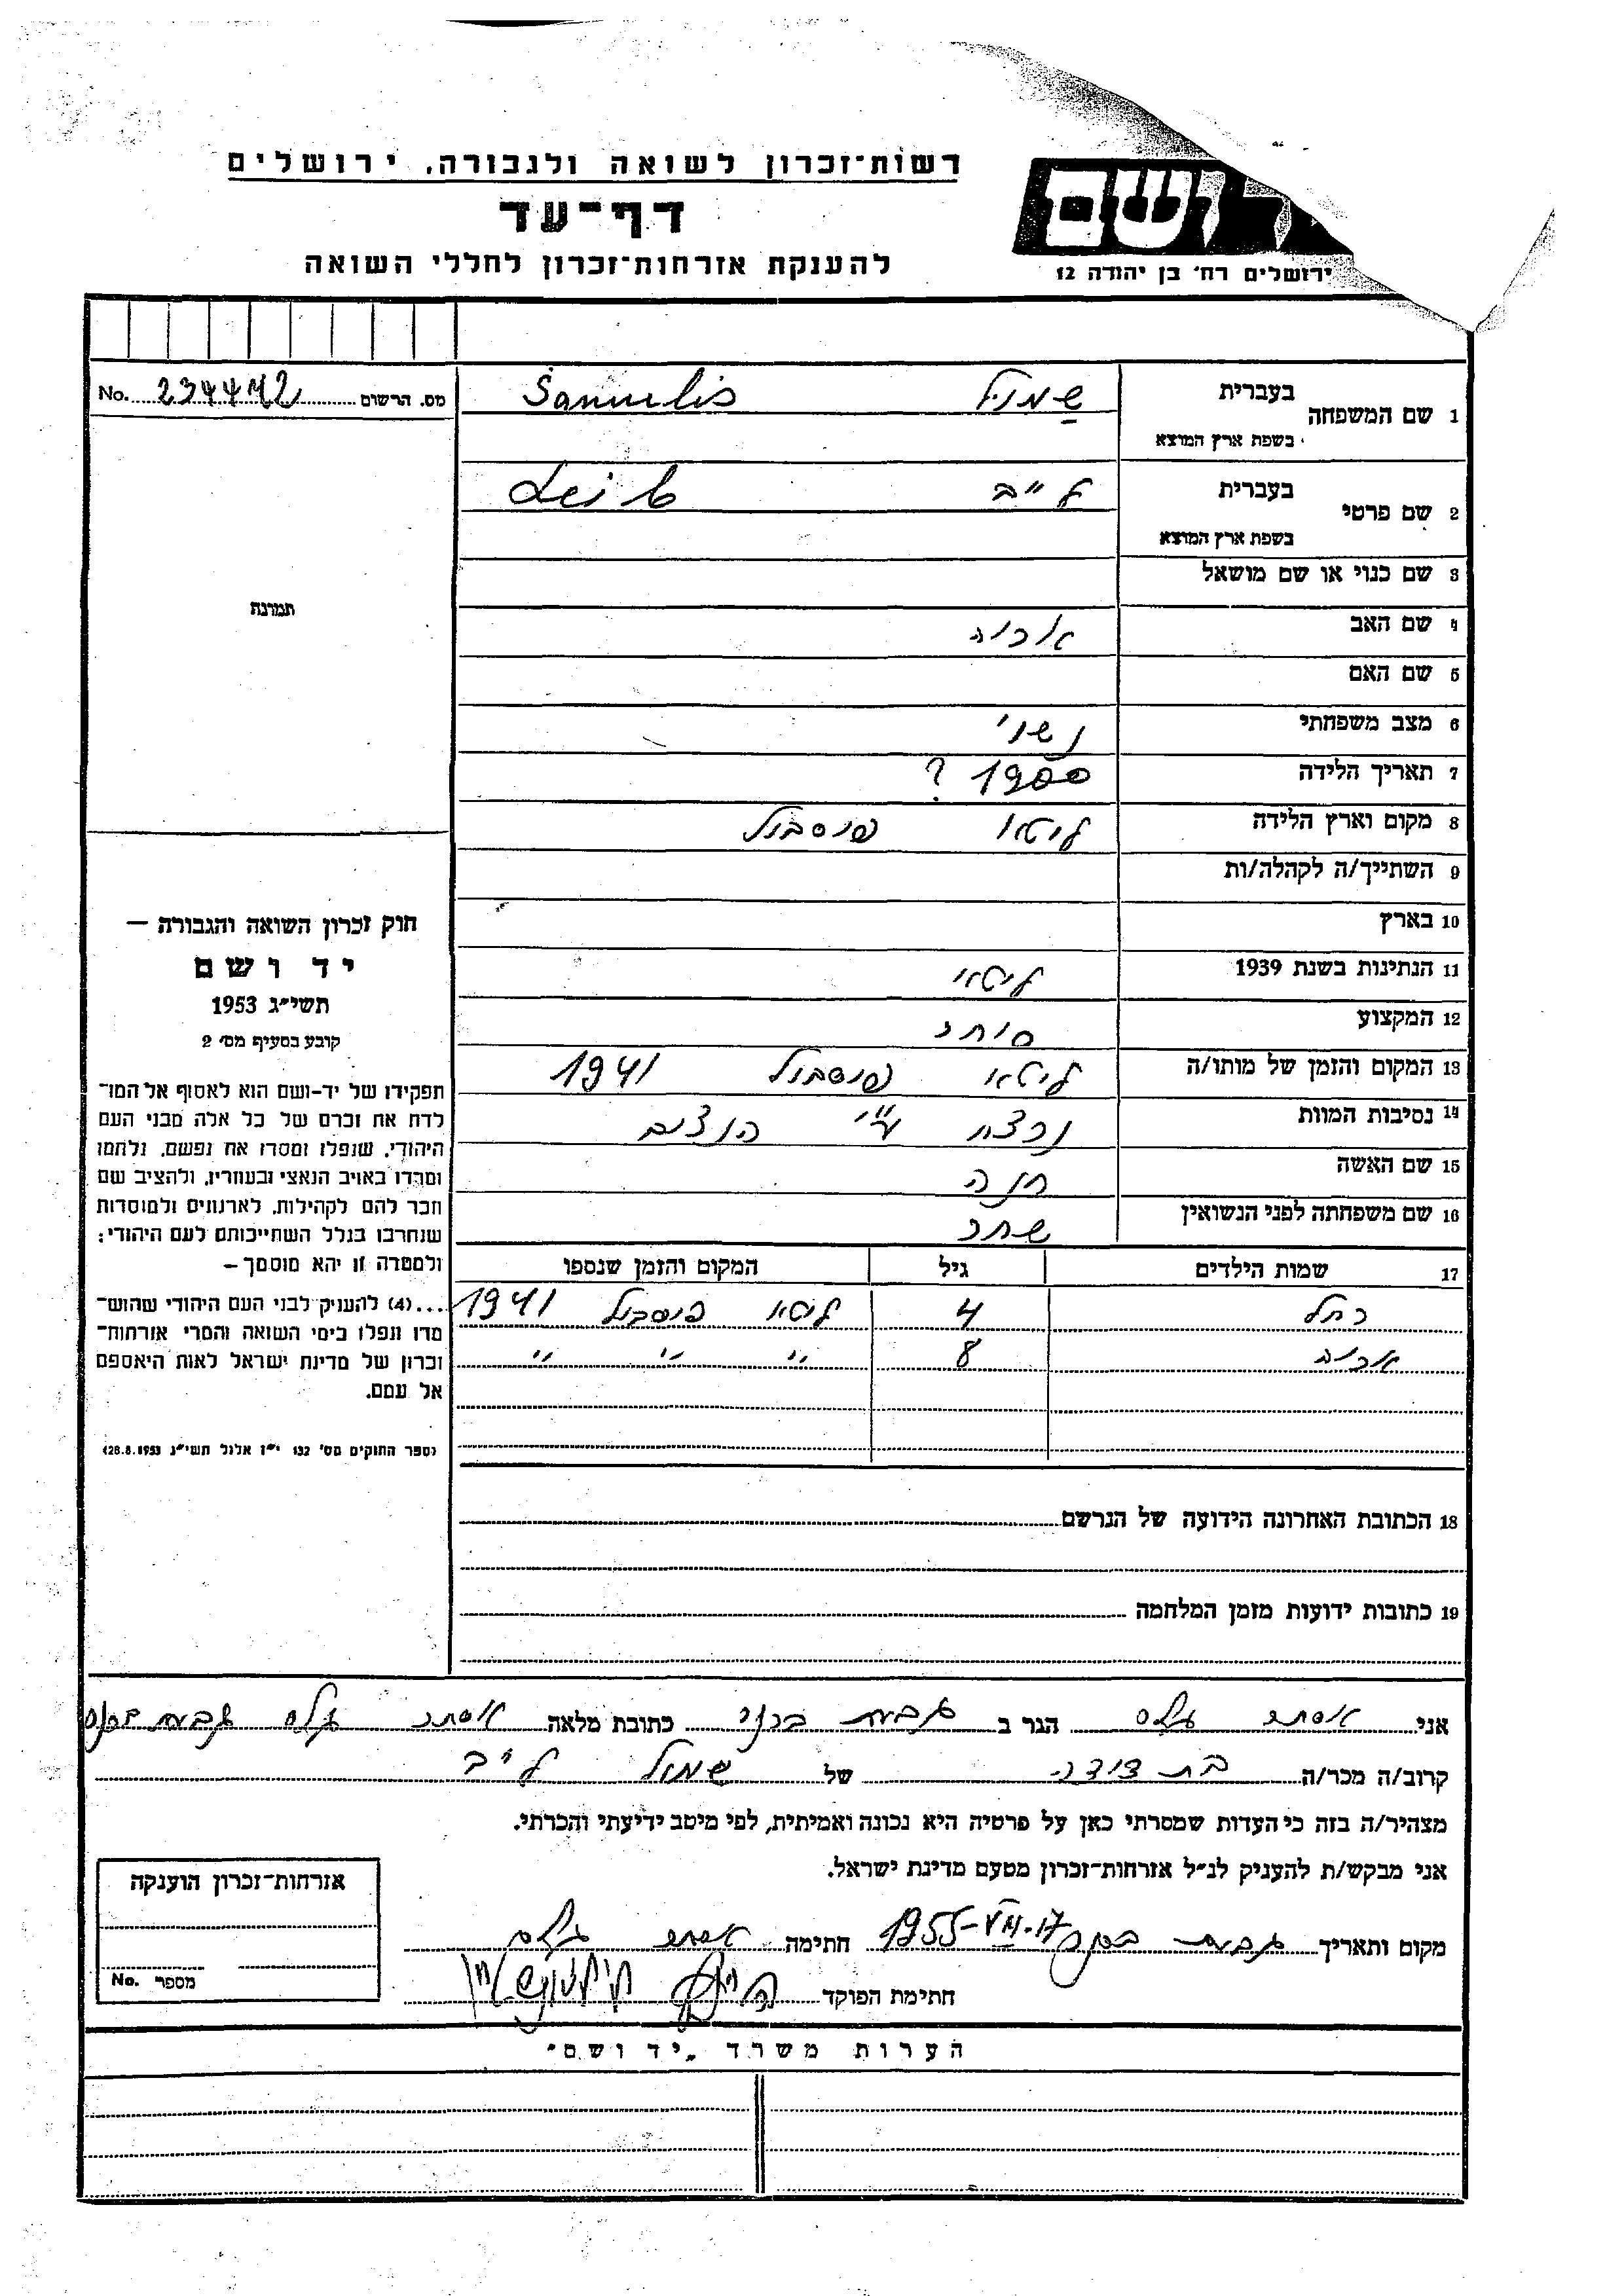 רשות־זכרון לשואה ולגבורה, ירושלים
דף־עד
להענקת אזרחות־זכרון לחללי השואה
ושם
ירושלים רח' בן יהודה 12
מס. הרשום No. 234442
1 שם המשפחה בעברית שמול Šamulis
בשפת ארץ המוצא
2 שם פרטי בעברית לייב Leib
בשפת ארץ המוצא
3 שם כנוי או שם מושאל
4 שם האב אריה
5 שם האם
6 מצב משפחתי נשוי
7 תאריך הלידה 1900 ?
8 מקום וארץ הלידה ליטא פוסבול
9 השתייך/ה לקהלה/ות
10 בארץ
11 הנתינות בשנת 1939 ליטאי
12 המקצוע סוחר
13 המקום והזמן של מותו/ה ליטא פוסבול 1941
14 נסיבות המוות נרצח ע"י הנצים
15 שם האשה חנה
16 שם משפחתה לפני הנשואין
17 שמות הילדים גיל המקום והזמן שנספו
רחל 4 ליטא פוסבול 1941
8 " " "
18 הכתובת האחרונה הידועה של הנרשם
19 כתובות ידועות מזמן המלחמה
תמונה
חוק זכרון השואה והגבורה –
יד ושם
תשי"ג 1953
קובע בסעיף מס' 2
תפקידו של יד־ושם הוא לאסוף אל המו־
לדת את זכרם של כל אלה מבני העם
היהודי, שנפלו ומסרו את נפשם, נלחמו
ומרדו באויב הנאצי ובעוזריו, ולהציב שם
וזכר להם לקהילות, לארגונים ולמוסדות
שנחרבו בגלל השתייכותם לעם היהודי;
ולמטרה זו יהא מוסמך –
...(4) להעניק לבני העם היהודי שהוש־
מדו ונפלו בימי השואה והמרי אזרחות־
זכרון של מדינת ישראל לאות היאספם
אל עמם.
(ספר החוקים מס' 132 י"ז אלול תשי"ג 28.8.1953)
אני אסתר הגר ב גבעת ברנר כתובת מלאה אסתר גבעת ברנר
קרוב/ה מכר/ה בת דודה של שמול לייב
מצהיר/ה בזה כי העדות שמסרתי כאן על פרטיה היא נכונה ואמיתית, לפי מיטב ידיעתי והכרתי.
אני מבקש/ת להעניק לנ"ל אזרחות־זכרון מטעם מדינת ישראל.
מקום ותאריך גבעת ברנר 17-VII-1955 חתימה אסתר
חתימת הפוקד
אזרחות־זכרון הוענקה
מספר No.
הערות משרד „יד ושם"